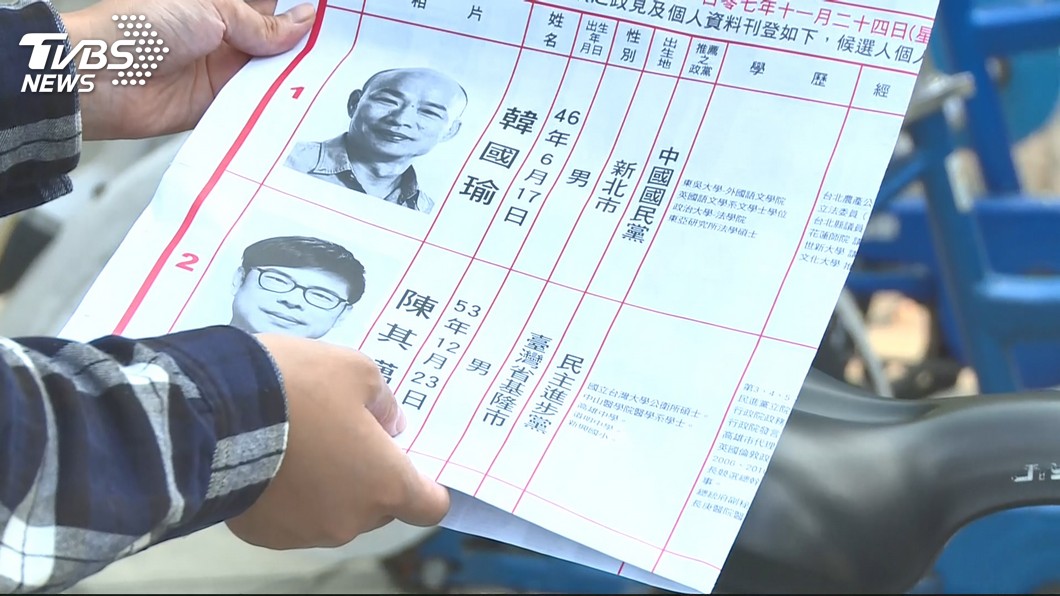 TVBS
NEWS
零七年十一月二十四日(星
政見及個人資料刊登如下，候選人個人
相片
姓名
出生年月日
性別
出生地
推薦之政黨
學歷
經
1
韓國瑜
46年6月17日
男
新北市
中國國民黨
東吳大學-外國語文學院
英國語文學系文學士學位
政治大學-法學院
東亞研究所法學碩士
台北農產公
立法委員
台北縣議員
花蓮師院
世新大學
文化大學
2
陳其
53年12月23日
男
臺灣省基隆市
民主進步黨
國立台灣大學公衛所碩士。
中山醫學院醫學系學士。
高雄中學。
新興國小。
第3、4、5
民進黨立院
行政院政務
行政院發言
高雄市代理
英國倫敦政
長競選總幹
事。
總統府副秘
長庚醫院醫